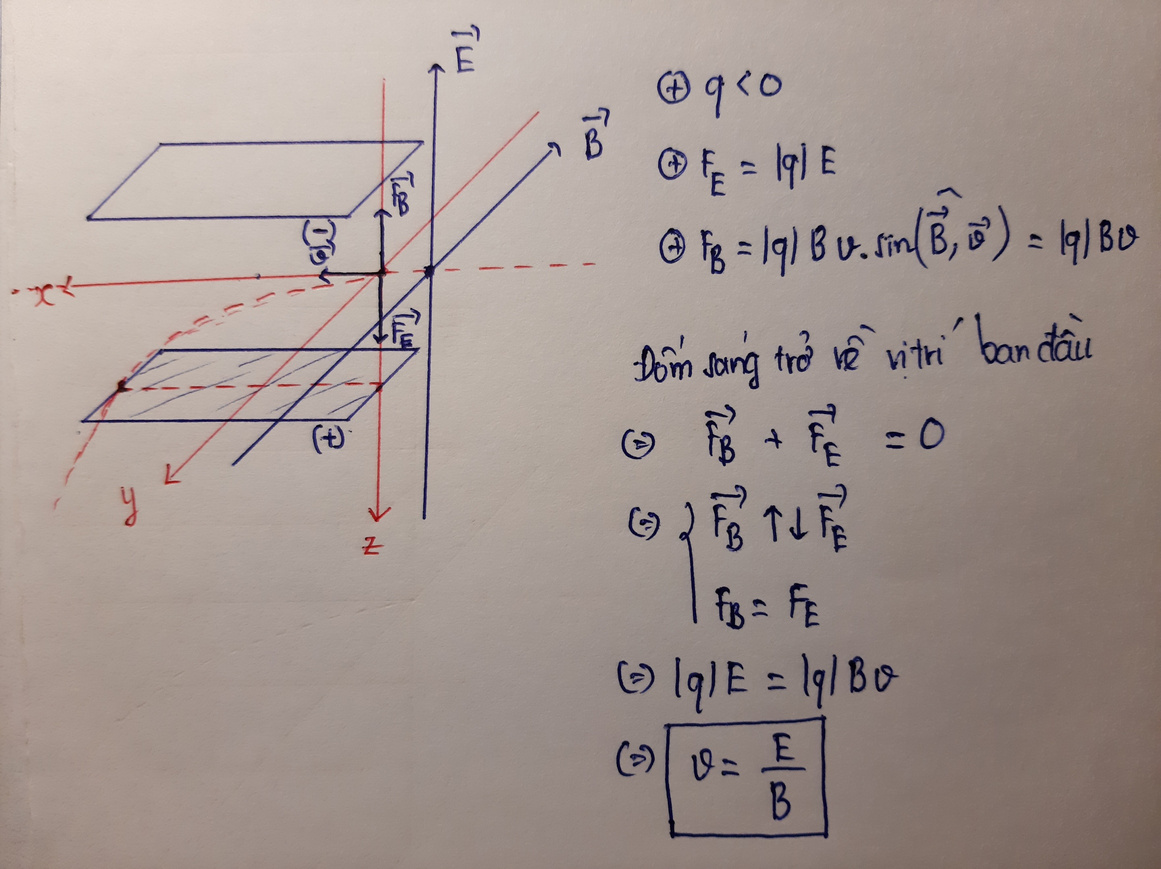 E⃗
B⃗
F⃗_B
(-)
v⃗
x
F⃗_E
(+)
y
z
⊕ q < 0
⊕ F_E = |q| E
⊕ F_B = |q| B v. sin(B⃗, v⃗) = |q| Bv
Đốm sáng trở về vị trí ban đầu
(=) F⃗_B + F⃗_E = 0
(=) { F⃗_B ↑↓ F⃗_E
F_B = F_E
(=) |q| E = |q| B v
(=) v = E/B